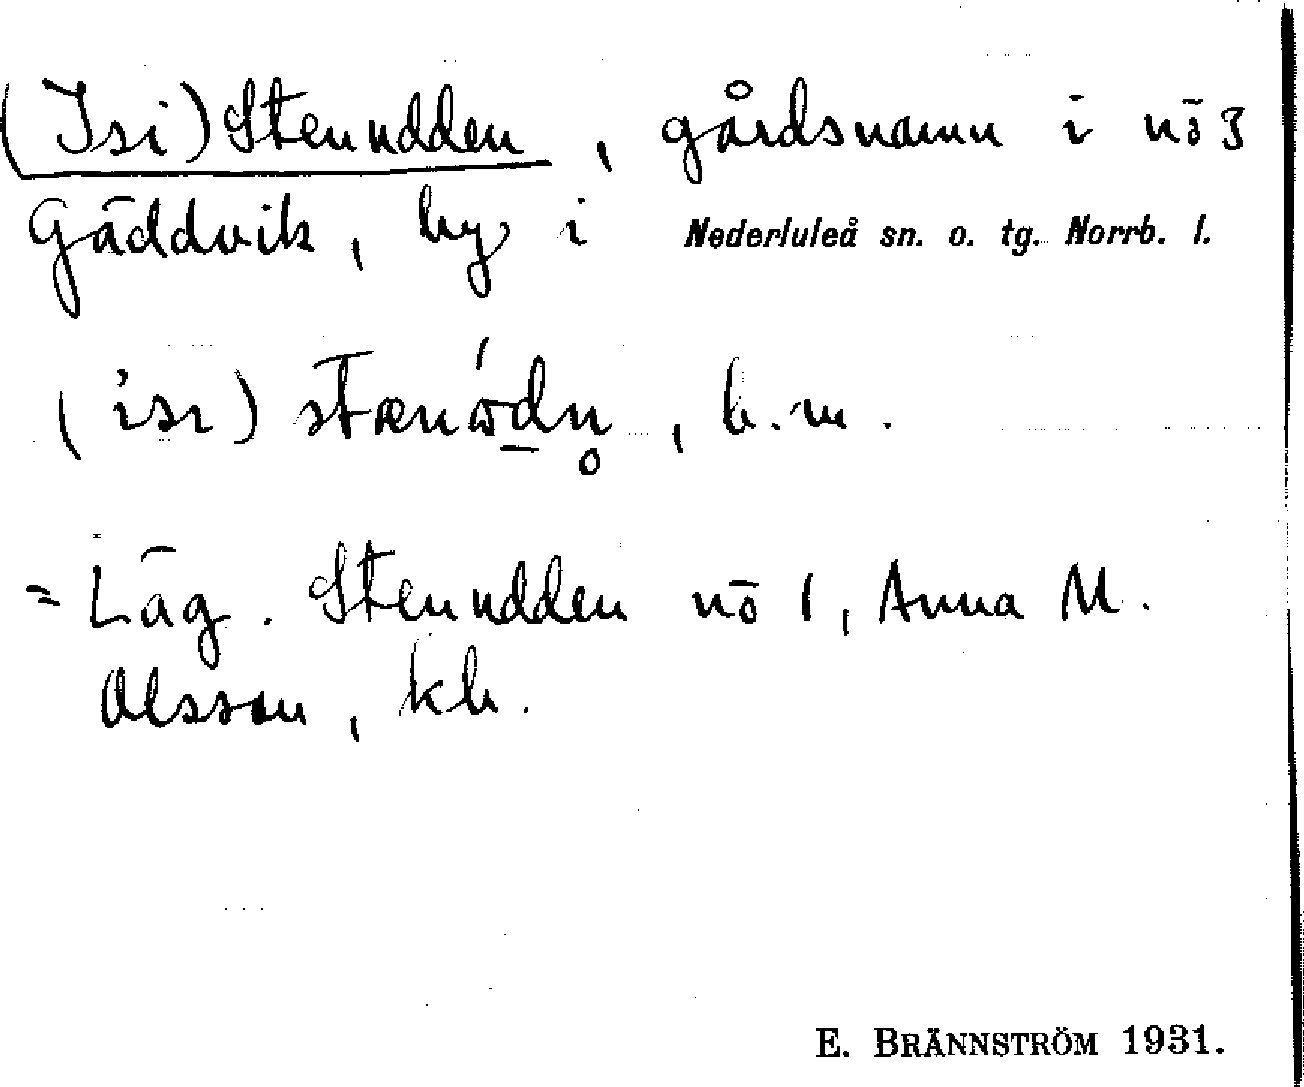 (Isi) Stenudden, gårdsnamn i nö 3
Gäddvik, by i Nederluleå sn. o. tg. Norrb. l.
(isi) , b. m.
= Läg. Stenudden nö 1, Anna M.
Olsson, kh.
E. BRÄNNSTRÖM 1931.